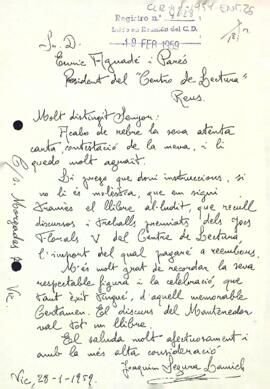 CLR 1959 ENT.25
Registro n.º
Lectores Ramón del C.D.
19 FEB 1959
Sr. D.
Enric Aguadé i Parés
President del "Centro de Lectura"
Reus.
Molt distingit Senyor:
Acabo de rebre la seva atenta
carta contestació de la meva, i li
quedo molt agraït.
Li prego que doni instruccions, si
no li és molèstia, que em sigui
tramès el llibre al·ludit, que recull
discursos i treballs premiats dels Jocs
Florals V del Centre de Lectura
l'import del qual pagaré a reembors.
M'és molt grat de recordar la seva
respectable figura i la celebració, que
tant èxit tingué, d'aquell memorable
Certamen. El discurs del Mantenedor
val tot un llibre.
El saluda molt afectuosament i
amb la més alta consideració
Joaquim Segura Lamich
Vic, 28-1-1959.
Vic.